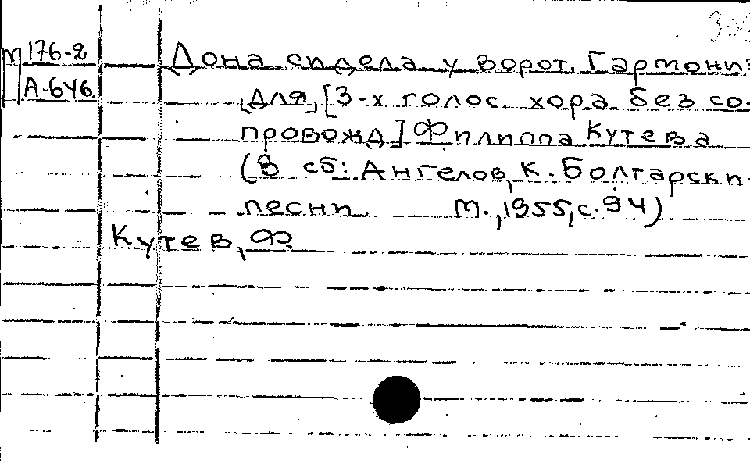 М 176-2
А-646
Дона сидела у ворот. Гармони:
для [3-х голос. хора без со-
провожд] Филиппа Кутева
(В сб: Ангелов, К. Болгарски
песни М., 1955, с. 94)
Кутев, Ф.